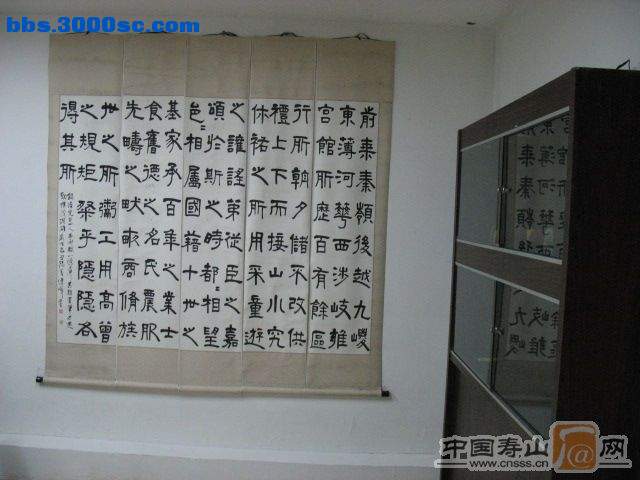 bbs.3000sc.com
前乘秦嶺後越九嵕
東薄河華西涉岐雍
宮館所歷百有餘區
行所朝夕儲不改供
禮上下而接山川究
休祐之所用采童遊
之讙謠第從臣之嘉
頌於斯之時都=相望
邑=相屬國籍十世之
基家承百年之業士
食舊德之名氏農服
先疇之畎畝商脩族
世之所鬻工用高曾
之規矩粲乎隱隱各
得其所
中国寿山石网
www.cnsss.cn